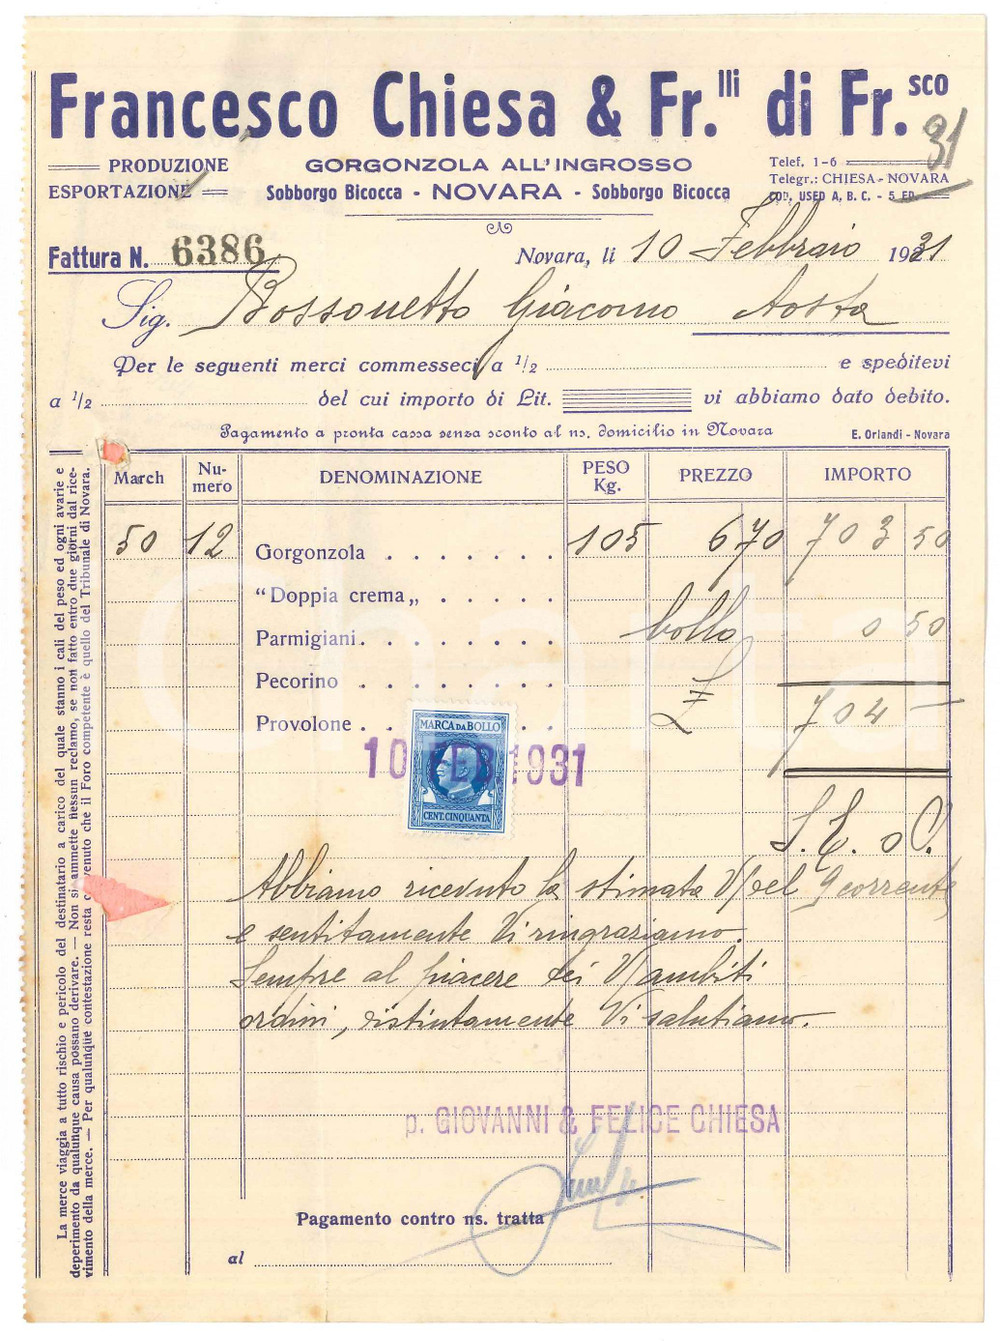 Francesco Chiesa & Fr.lli di Fr.sco
31
PRODUZIONE
ESPORTAZIONE
GORGONZOLA ALL'INGROSSO
Sobborgo Bicocca - NOVARA - Sobborgo Bicocca
Telef. 1-6
Telegr.: CHIESA - NOVARA
COD. USED A. B. C. - 5 ED.
Fattura N. 6386
Novara, li 10 Febbraio 1931
Sig. Bossonetto Giacomo Aosta
Per le seguenti merci commesseci a 1/2 e speditevi
a 1/2 del cui importo di Lit. vi abbiamo dato debito.
Pagamento a pronta cassa senza sconto al ns. domicilio in Novara
E. Orlandi - Novara
March Nu-mero DENOMINAZIONE PESO Kg. PREZZO IMPORTO
50 12 Gorgonzola 105 670 703 50
"Doppia crema„
Parmigiani bollo 0 50
Pecorino
Provolone £ 704 —
MARCA DA BOLLO
CENT. CINQUANTA
10 FEB 1931
S. E. o O.
Abbiamo ricevuto la stimata V/ del 9 corrente
e sentitamente Vi ringraziamo.
Sempre al piacere dei V/ ambiti
ordini, distintamente Vi salutiamo.
p. GIOVANNI & FELICE CHIESA
Pagamento contro ns. tratta
al
La merce viaggia a tutto rischio e pericolo del destinatario a carico del quale stanno i cali del peso ed ogni avarie e
deperimento da qualunque causa possano derivare. — Non si ammette nessun reclamo, se non fatto entro due giorni dal rice-
vimento della merce. — Per qualunque contestazione resta convenuto che il Foro competente è quello del Tribunale di Novara.